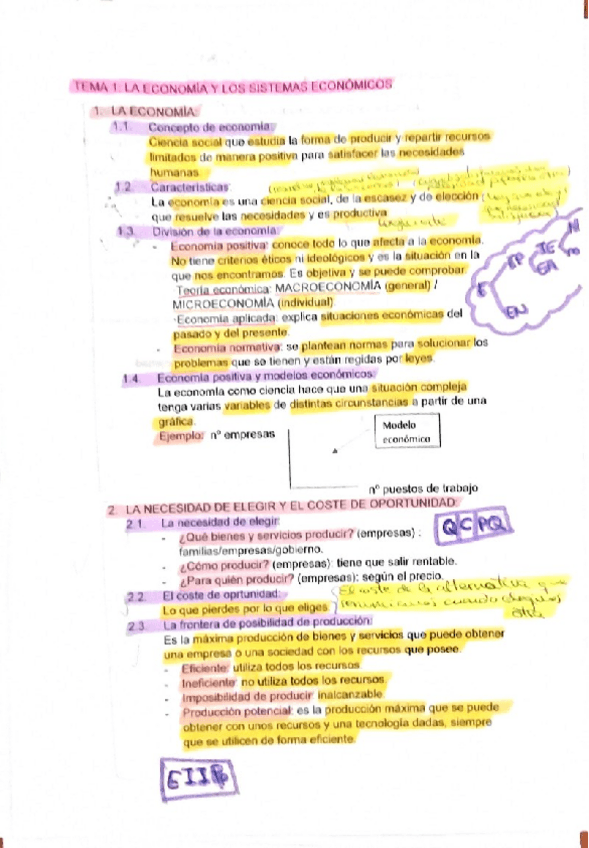 TEMA 1: LA ECONOMÍA Y LOS SISTEMAS ECONÓMICOS
1. LA ECONOMÍA:
1.1. Concepto de economía:
Ciencia social que estudia la forma de producir y repartir recursos
limitados de manera positiva para satisfacer las necesidades
humanas.
1.2. Características:
La economía es una ciencia social, de la escasez y de elección
que resuelve las necesidades y es productiva
1.3. División de la economía:
- Economía positiva: conoce todo lo que afecta a la economía.
No tiene criterios éticos ni ideológicos y es la situación en la
que nos encontramos. Es objetiva y se puede comprobar
-Teoría económica: MACROECONOMÍA (general) /
MICROECONOMÍA (individual)
-Economía aplicada: explica situaciones económicas del
pasado y del presente.
- Economía normativa: se plantean normas para solucionar los
problemas que se tienen y están regidas por leyes.
E
EP
TE
EA
EN
1.4. Economía positiva y modelos económicos:
La economía como ciencia hace que una situación compleja
tenga varias variables de distintas circunstancias a partir de una
gráfica.
Ejemplo: nº empresas
Modelo
económico
nº puestos de trabajo
2. LA NECESIDAD DE ELEGIR Y EL COSTE DE OPORTUNIDAD:
2.1. La necesidad de elegir:
- ¿Qué bienes y servicios producir? (empresas) :
familias/empresas/gobierno.
- ¿Cómo producir? (empresas): tiene que salir rentable.
- ¿Para quién producir? (empresas): según el precio.
QCPQ
2.2. El coste de oprtunidad:
Lo que pierdes por lo que eliges
El coste de la alternativa que
renunciamos cuando elegimos
otra
2.3. La frontera de posibilidad de producción:
Es la máxima producción de bienes y servicios que puede obtener
una empresa o una sociedad con los recursos que posee.
- Eficiente: utiliza todos los recursos
- Ineficiente: no utiliza todos los recursos
- Imposibilidad de producir: inalcanzable
- Producción potencial: es la producción máxima que se puede
obtener con unos recursos y una tecnología dadas, siempre
que se utilicen de forma eficiente.